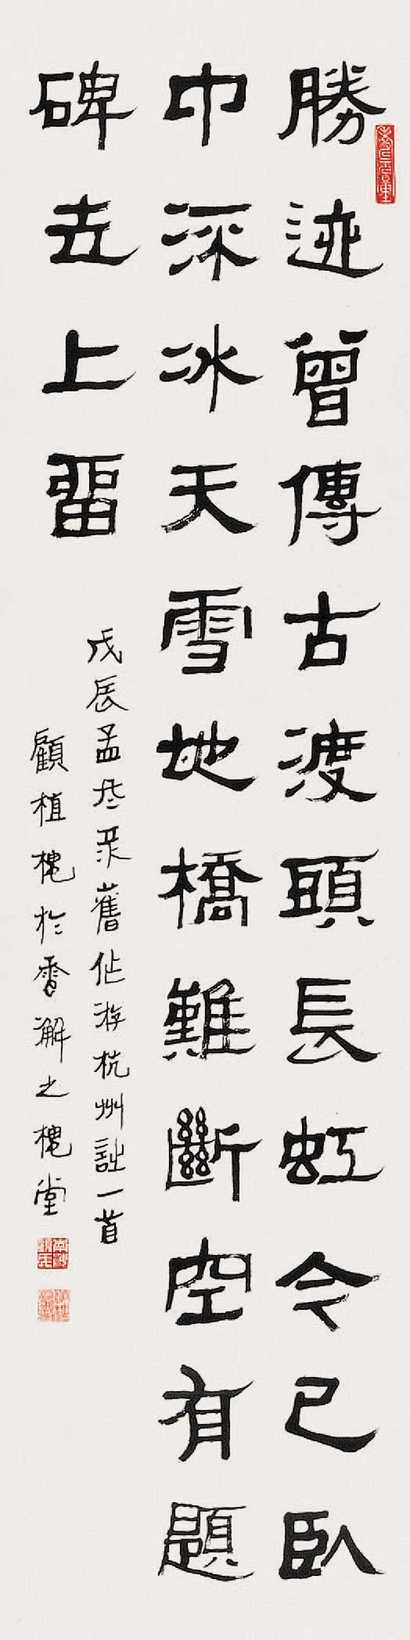 勝迹曾傳古渡頭長虹今已臥
中流冰天雪地橋難斷空有題
碑去上留
戊辰孟冬录舊作游杭州詩一首
顧植槐於香澥之槐堂